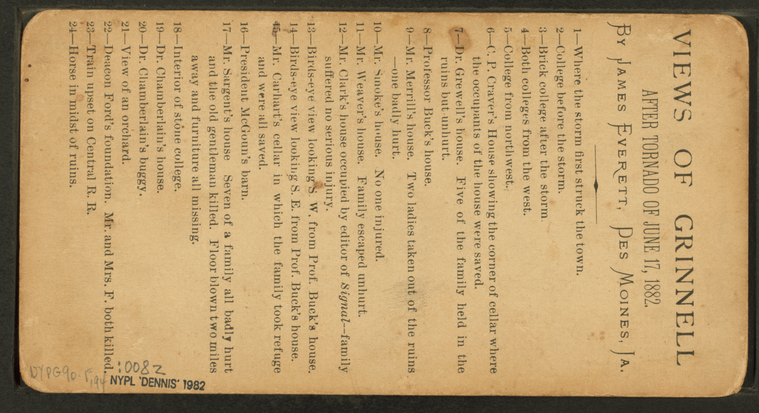 VIEWS OF GRINNELL
AFTER TORNADO OF JUNE 17, 1882.
BY JAMES EVERETT, DES MOINES, IA.
1—Where the storm first struck the town.
2—College before the storm.
3—Brick college after the storm
4—Both colleges from the west.
5—College from northwest.
6—C. P. Craver's House showing the corner of cellar where
the occupants of the house were saved.
7—Dr. Grewell's house. Five of the family held in the
ruins but unhurt.
8—Professor Buck's house.
9—Mr. Merrill's house. Two ladies taken out of the ruins
—one badly hurt.
10—Mr. Smoke's house. No one injured.
11—Mr. Weaver's house. Family escaped unhurt.
12—Mr. Clark's house occupied by editor of Signal—family
suffered no serious injury.
13—Birds-eye view looking S. W. from Prof. Buck's house.
14—Birds-eye view looking S. E. from Prof. Buck's house.
15—Mr. Carhart's cellar in which the family took refuge
and were all saved.
16—President McGoun's barn.
17—Mr. Sargent's house Seven of a family all badly hurt
and the old gentleman killed. Floor blown two miles
away and furniture all missing.
18—Interior of stone college.
19—Dr. Chamberlain's house.
20—Dr. Chamberlain's buggy.
21—View of an orchard.
22—Deacon Ford's foundation. Mr. and Mrs. F. both killed.
23—Train upset on Central R. R.
24—Horse in midst of ruins.
:0082
NYPL 'DENNIS' 1982